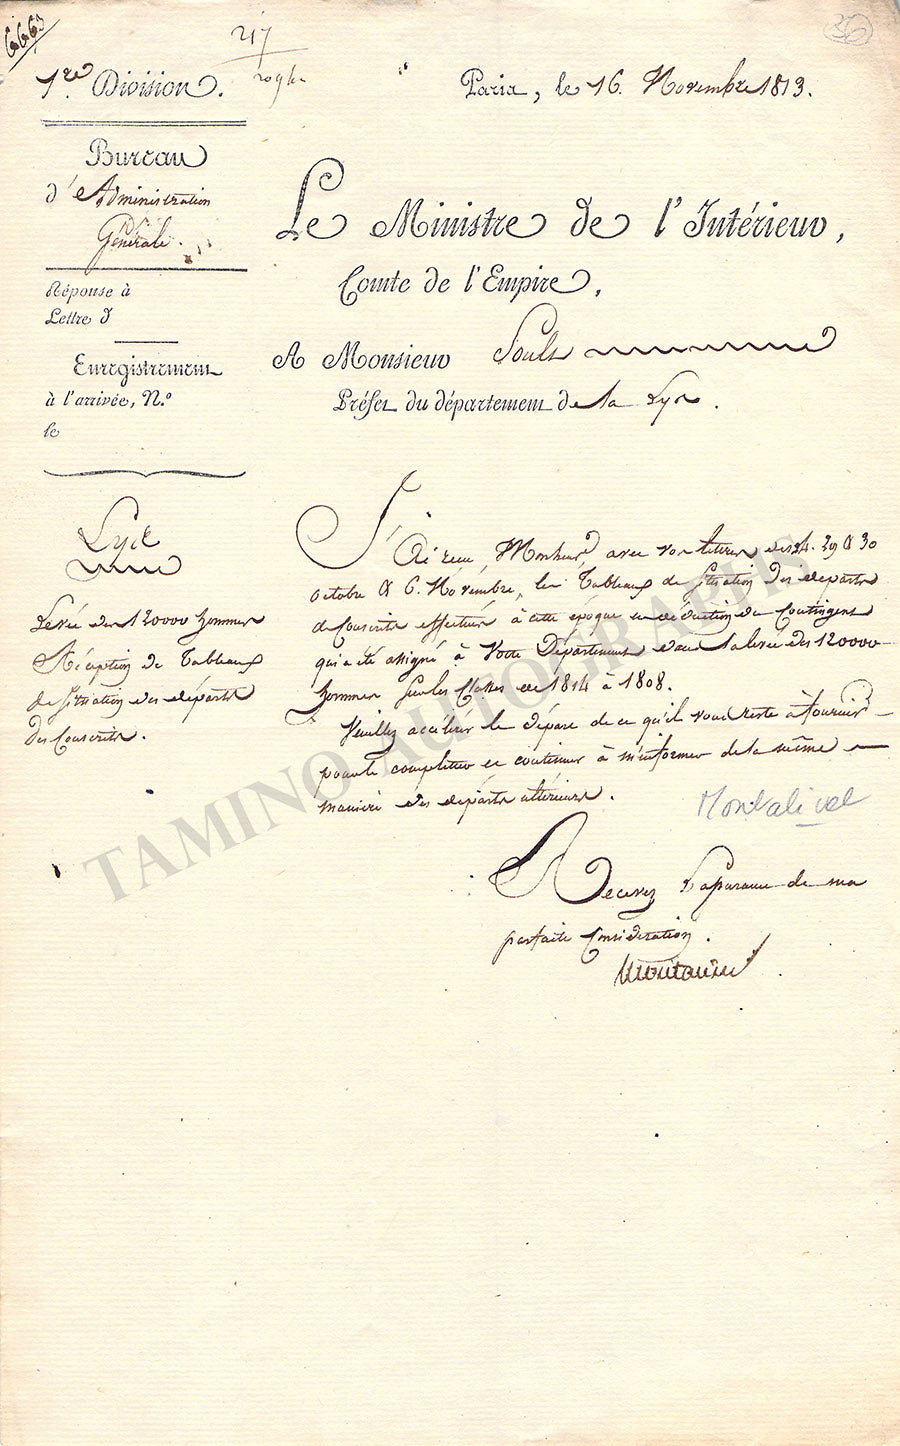 6663
217
36
1re Division.
Paris, le 16. Novembre 1813.
Bureau
d'Administration
Générale.
Le Ministre de l'Intérieur,
Comte de l'Empire,
Réponse à
Lettre d
A Monsieur Soult
Enregistrement
Préfet du département de la Lys.
à l'arrivée, N.º
le
Lys
Levée des 120000 hommes
Réception de Tableaux
de situation des départs
des Conscrits.
J'ai reçu, Monsieur, avec vos lettres des 24. 29 & 30
octobre & 6. Novembre, les Tableaux de situation des départs
de Conscrits effectués à cette époque en déduction du Contingent
qui a été assigné à Votre Département dans la levée des 120000
hommes sur les Classes de 1814 à 1808.
Veuillez accélérer le départ de ce qu'il vous reste à fournir
pour le completter et continuer à m'informer de la même
manière des départs ultérieurs.
Montalivet
Recevez l'assurance de ma
parfaite Considération.
Montalivet
TAMINO AUTOGRAPHS